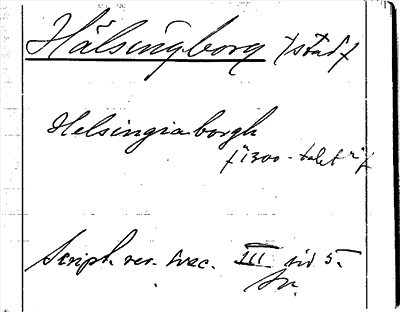 Hälsingborg /stad/
Helsingiaborgh
/"1300-talet"/
Script. rer. svec. III sid 5.